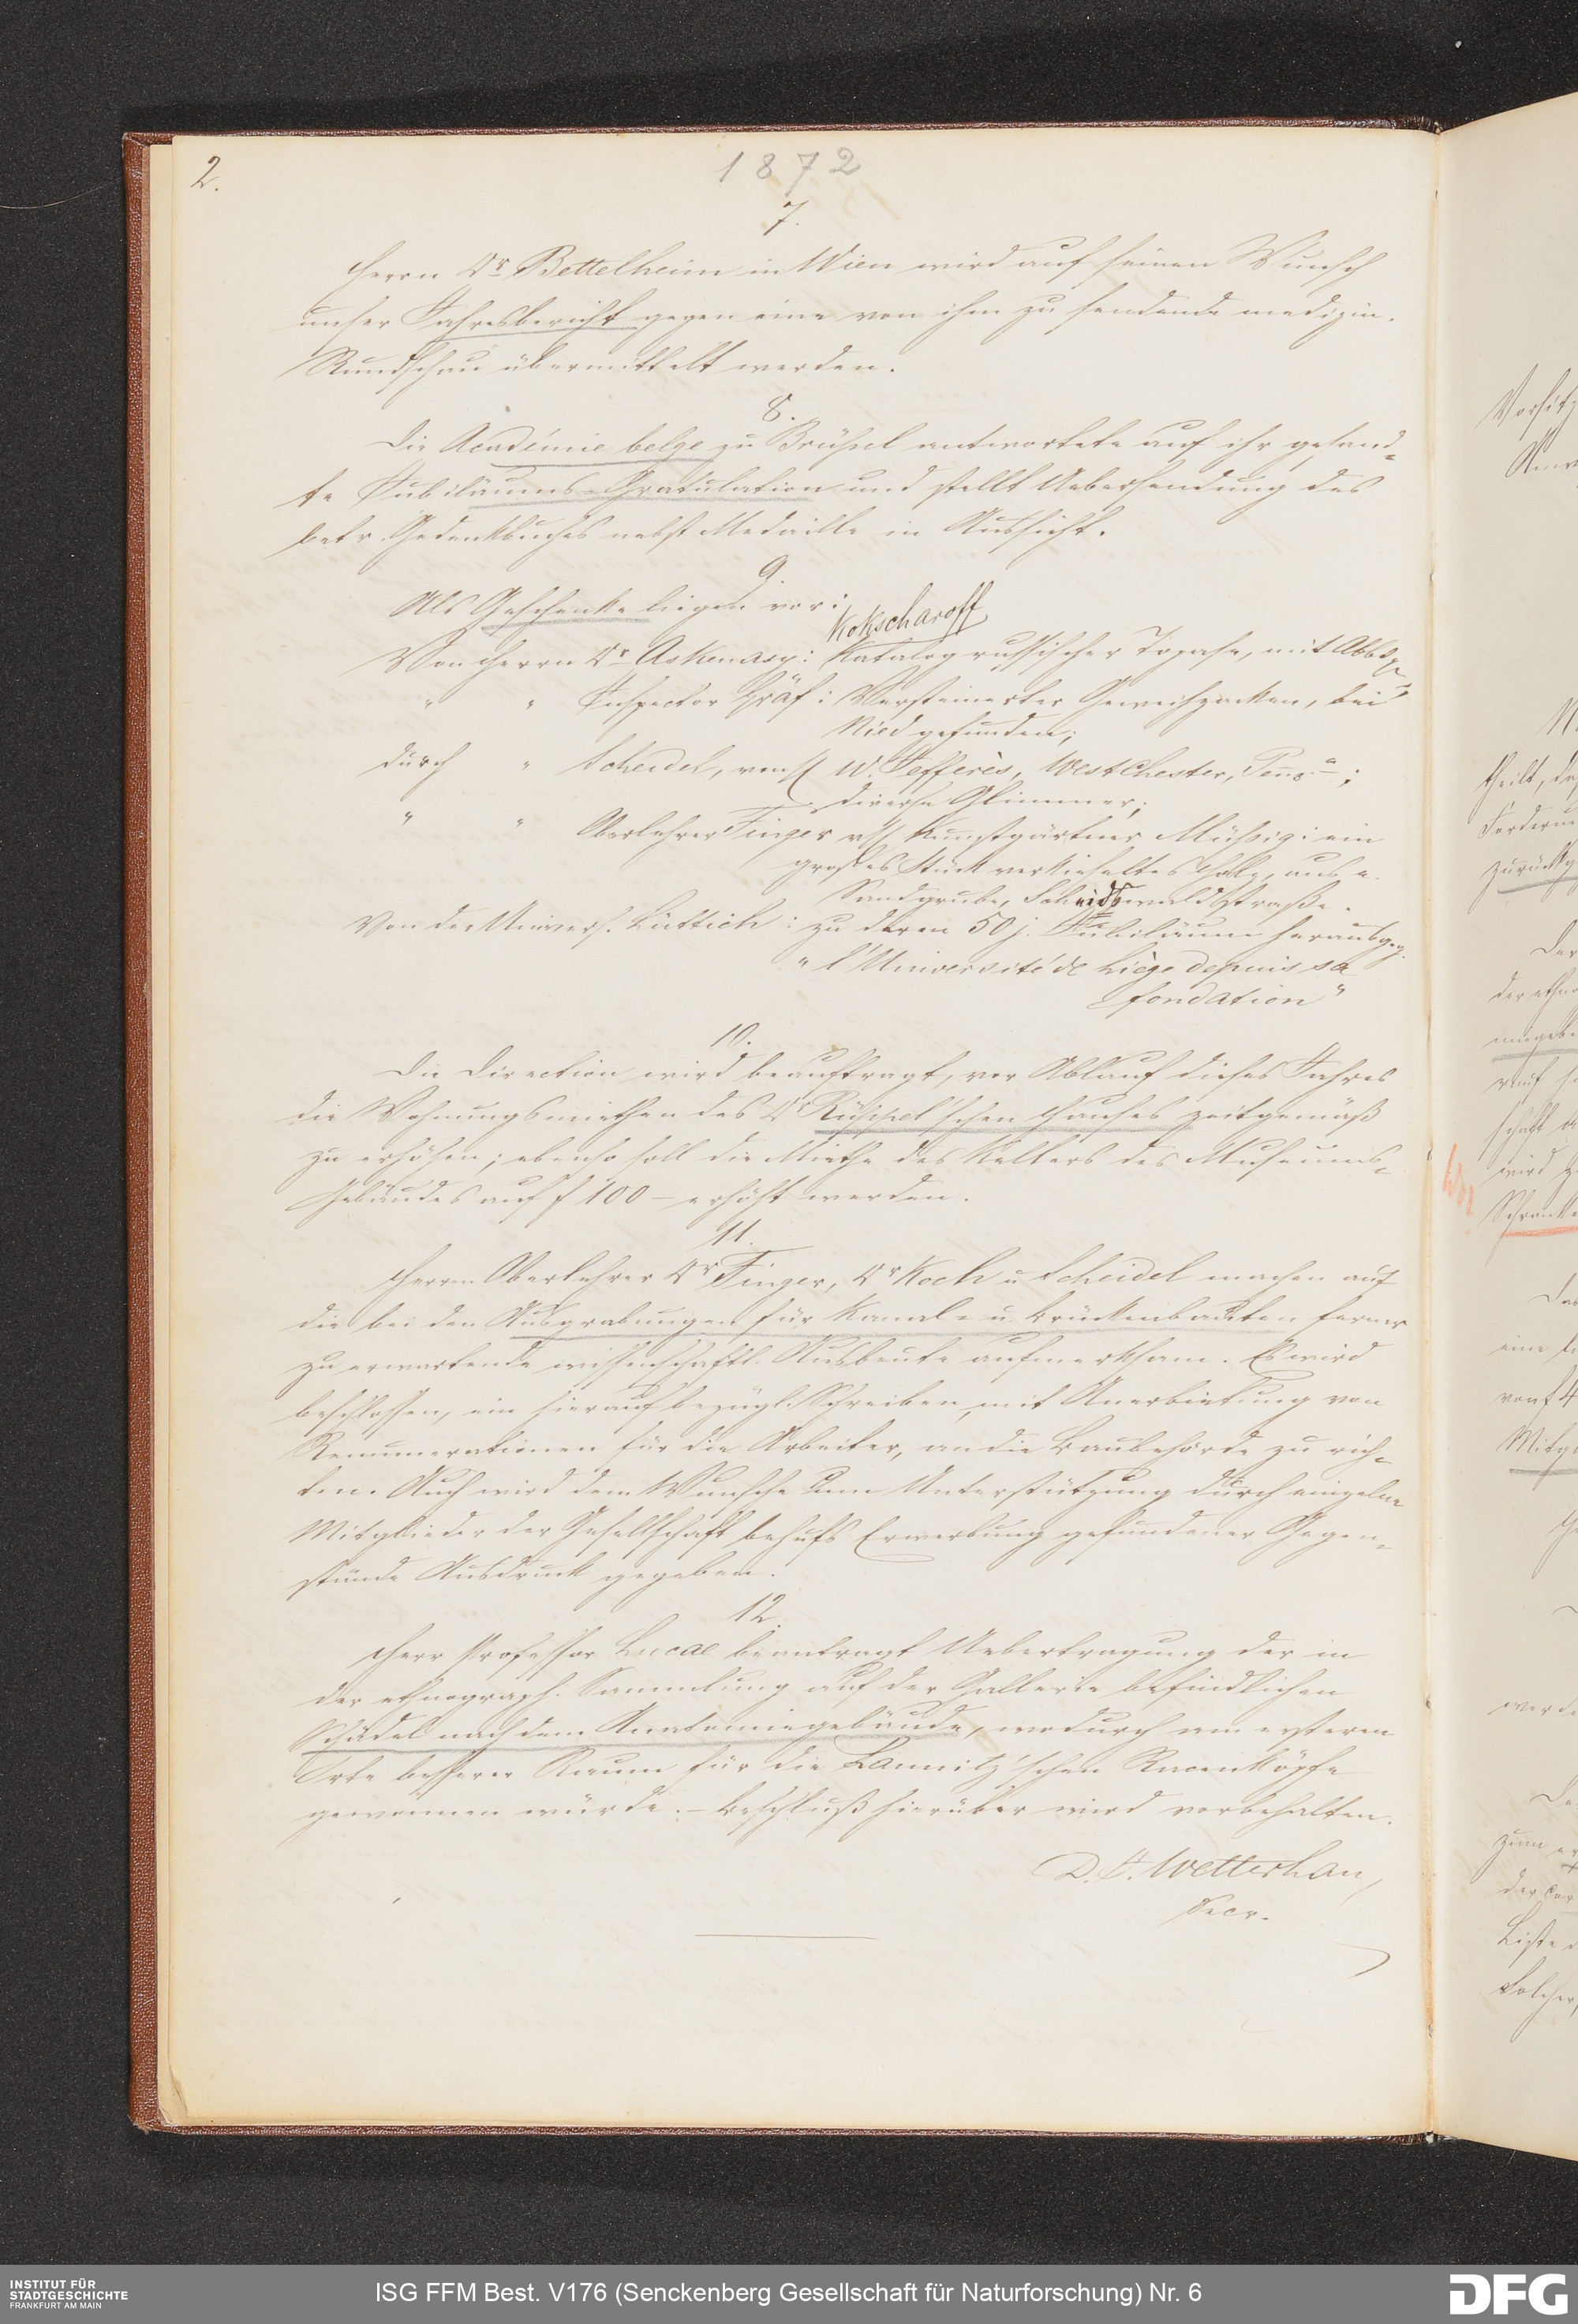 2.
1872
7.
Herrn Dr Bettelheim in Wien wird auf seinen Wunsch
unser Jahresbericht gegen eine von ihm zu sendende medizin.
Rundschau übermittelt werden.
8.
Die Académie belge zu Brüssel antwortete auf ihr gesand-
te Jubiläums-Gratulation und stellt Uebersendung des
betr. Gedenkbuches nebst Medaille in Aussicht.
9.
Als Geschenke liegen vor:
Kokscharoff
Von Herrn Dr Askenasy: Katalog russischer Topase, mit Abbdg.;
" " Inspector Gräf: Versteinerter Geweihzacken, bei
Nied gefunden;
durch " Scheidel, von H W. Jefferis, Westchester, Penna;
diverse Glimmer;
" " Oberlehrer Finger v H Kunstgärtner Müssig: ein
großes Stück verkieseltes Holz, aus e.
Sandgrube, Scheidswaldstraße.
Von der Univers. Lüttich: zu deren 50 j. Jubiläum herausgeg.
"l'Université de Liège depuis sa
fondation"
10.
Die Direction wird beauftragt, vor Ablauf dieses Jahres
die Wohnungsmiethen des Dr Rüppel'schen Hauses zeitgemäß
zu erhöhen; ebenso soll die Miethe des Kellers des Museums-
Gebäudes auf f 100 - erhöht werden.
11.
Herren Oberlehrer Dr Finger, Dr Koch u Scheidel machen auf
die bei den Ausgrabungen für Kanal- u. Brückenbauten ferner
zu erwartende wissenschaftl. Ausbeute aufmerksam. Es wird
beschlossen, ein hierauf bezügl. Schreiben, mit Anerbietung von
Renumerationen für die Arbeiter, an die Baubehörde zu rich-
ten. Auch wird dem Wunsche um Unterstützung durch einzelne
Mitglieder der Gesellschaft behufs Erwerbung gefundener Gegen-
stände Ausdruck gegeben.
12.
Herr Professor Lucae beantragt Uebertragung der in
der ethnograph. Sammlung auf der Gallerie befindlichen
Schädel nach dem Anatomiegebäude, wodurch am ersteren
Orte besserer Raum für die Launitz'schen Racenköpfe
gewonnen würde. - Beschluß hierüber wird vorbehalten.
D. F. Wetterhan,
Secr.
INSTITUT FÜR
STADTGESCHICHTE
FRANKFURT AM MAIN
ISG FFM Best. V176 (Senckenberg Gesellschaft für Naturforschung) Nr. 6
DFG